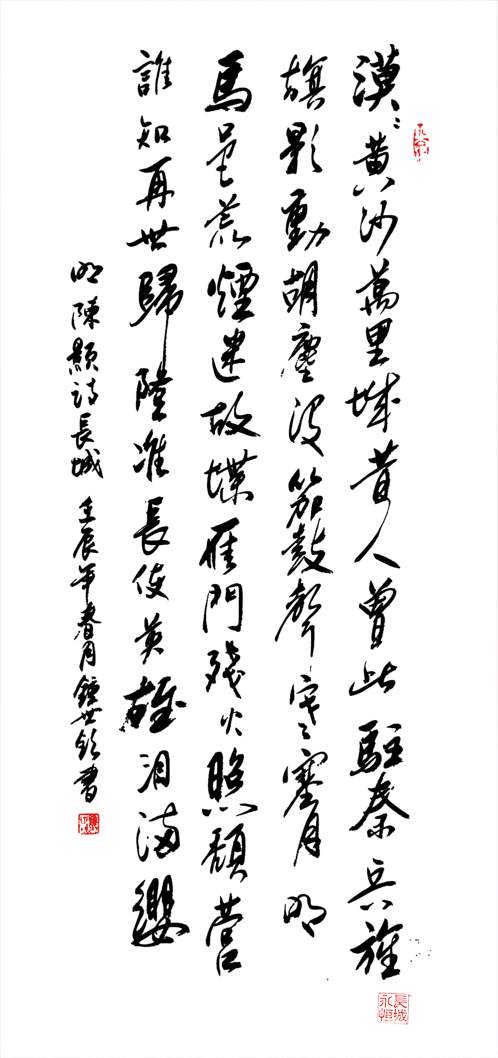 漠〻黄沙萬里城昔人曾此駐秦兵旌
旗影動胡塵没笳鼓聲寒塞月明
馬邑荒煙迷故堞雁門殘火照頹營
誰知再世歸隆准長使英雄泪滿纓
明陳顥詩長城 壬辰年春月鍾世書
長城永恒